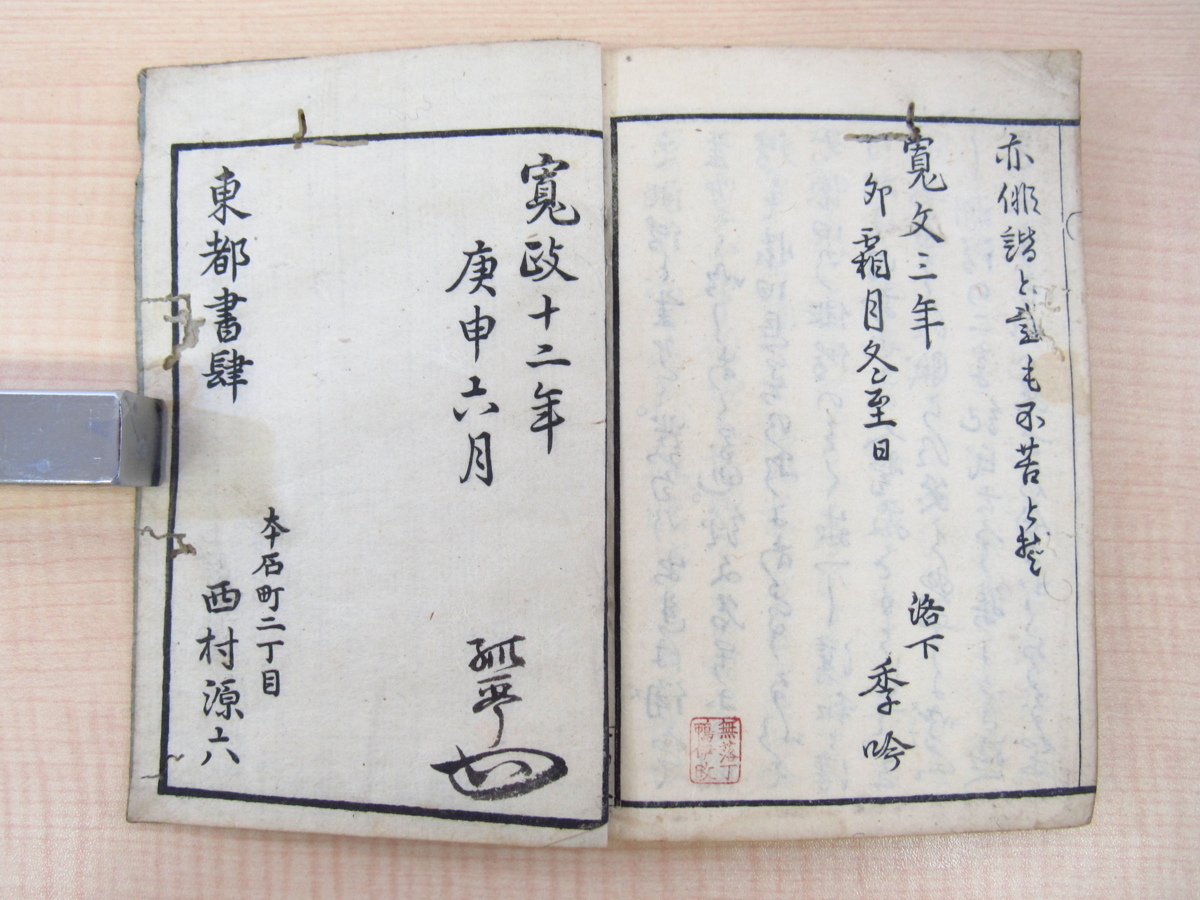 亦俳諧と云も不苦と
寛文三年
卯霜月冬至日
洛下
季吟
無落丁
寛政十二年
庚申六月
本石町二丁目
東都書肆 西村源六